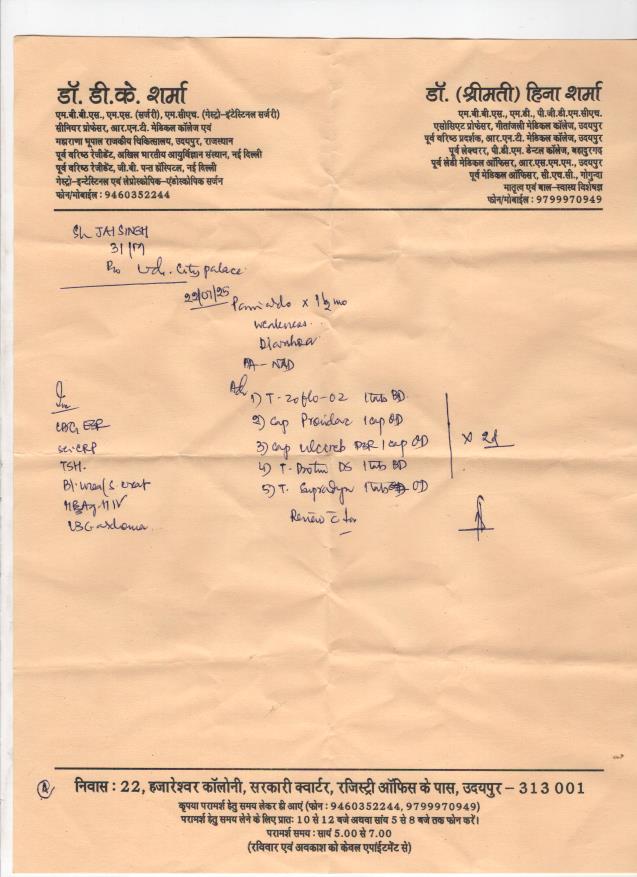 डॉ. डी.के. शर्मा
एम.बी.बी.एस., एम.एस. (सर्जरी), एम.सीएच. (गेस्ट्रो-इंटेस्टिनल सर्जरी)
सीनियर प्रोफेसर, आर.एन.टी. मेडिकल कॉलेज एवं
महाराणा भूपाल राजकीय चिकित्सालय, उदयपुर, राजस्थान
पूर्व वरिष्ठ रेजीडेंट, अखिल भारतीय आयुर्विज्ञान संस्थान, नई दिल्ली
पूर्व वरिष्ठ रेजीडेंट, जी.बी. पन्त हॉस्पिटल, नई दिल्ली
गेस्ट्रो-इन्टेस्टिनल एवं लेप्रोस्कोपिक-एंडोस्कोपिक सर्जन
फोन/मोबाईल : 9460352244
डॉ. (श्रीमती) हिना शर्मा
एम.बी.बी.एस., एम.डी., पी.जी.डी.एम.सीएच.
एसोसिएट प्रोफेसर, गीतांजली मेडिकल कॉलेज, उदयपुर
पूर्व वरिष्ठ प्रदर्शक, आर.एन.टी. मेडिकल कॉलेज, उदयपुर
पूर्व लेक्चरर, पी.डी.एम. डेन्टल कॉलेज, बहादुरगढ़
पूर्व लेडी मेडिकल ऑफिसर, आर.एस.एम.एम., उदयपुर
पूर्व मेडिकल ऑफिसर, सी.एच.सी., गोगुन्दा
मातृत्व एवं बाल-स्वास्थ्य विशेषज्ञ
फोन/मोबाईल : 9799970949
Sh JAI SINGH
31/M
R/o Ud. City palace
22/07/25
x 1½ mo
weakness
Diarrhoea
PA - NAD
Adv
1) T- Zoflo-OZ 1 tab BD
2) Cap 1 cap OD
3) Cap DSR 1 cap OD
4) T. DS 1 tab BD
5) T. Supradyn 1 tab OD
Review
Inv
CBC, ESR
CRP
TSH
Bl. urea/S. creat
HBsAg, HIV
निवास : 22, हजारेश्वर कॉलोनी, सरकारी क्वार्टर, रजिस्ट्री ऑफिस के पास, उदयपुर – 313 001
कृपया परामर्श हेतु समय लेकर ही आएं (फोन : 9460352244, 9799970949)
परामर्श हेतु समय लेने के लिए प्रातः 10 से 12 बजे अथवा सांय 5 से 8 बजे तक फोन करें।
परामर्श समय : सायं 5.00 से 7.00
(रविवार एवं अवकाश को केवल एपांईटमेंट से)